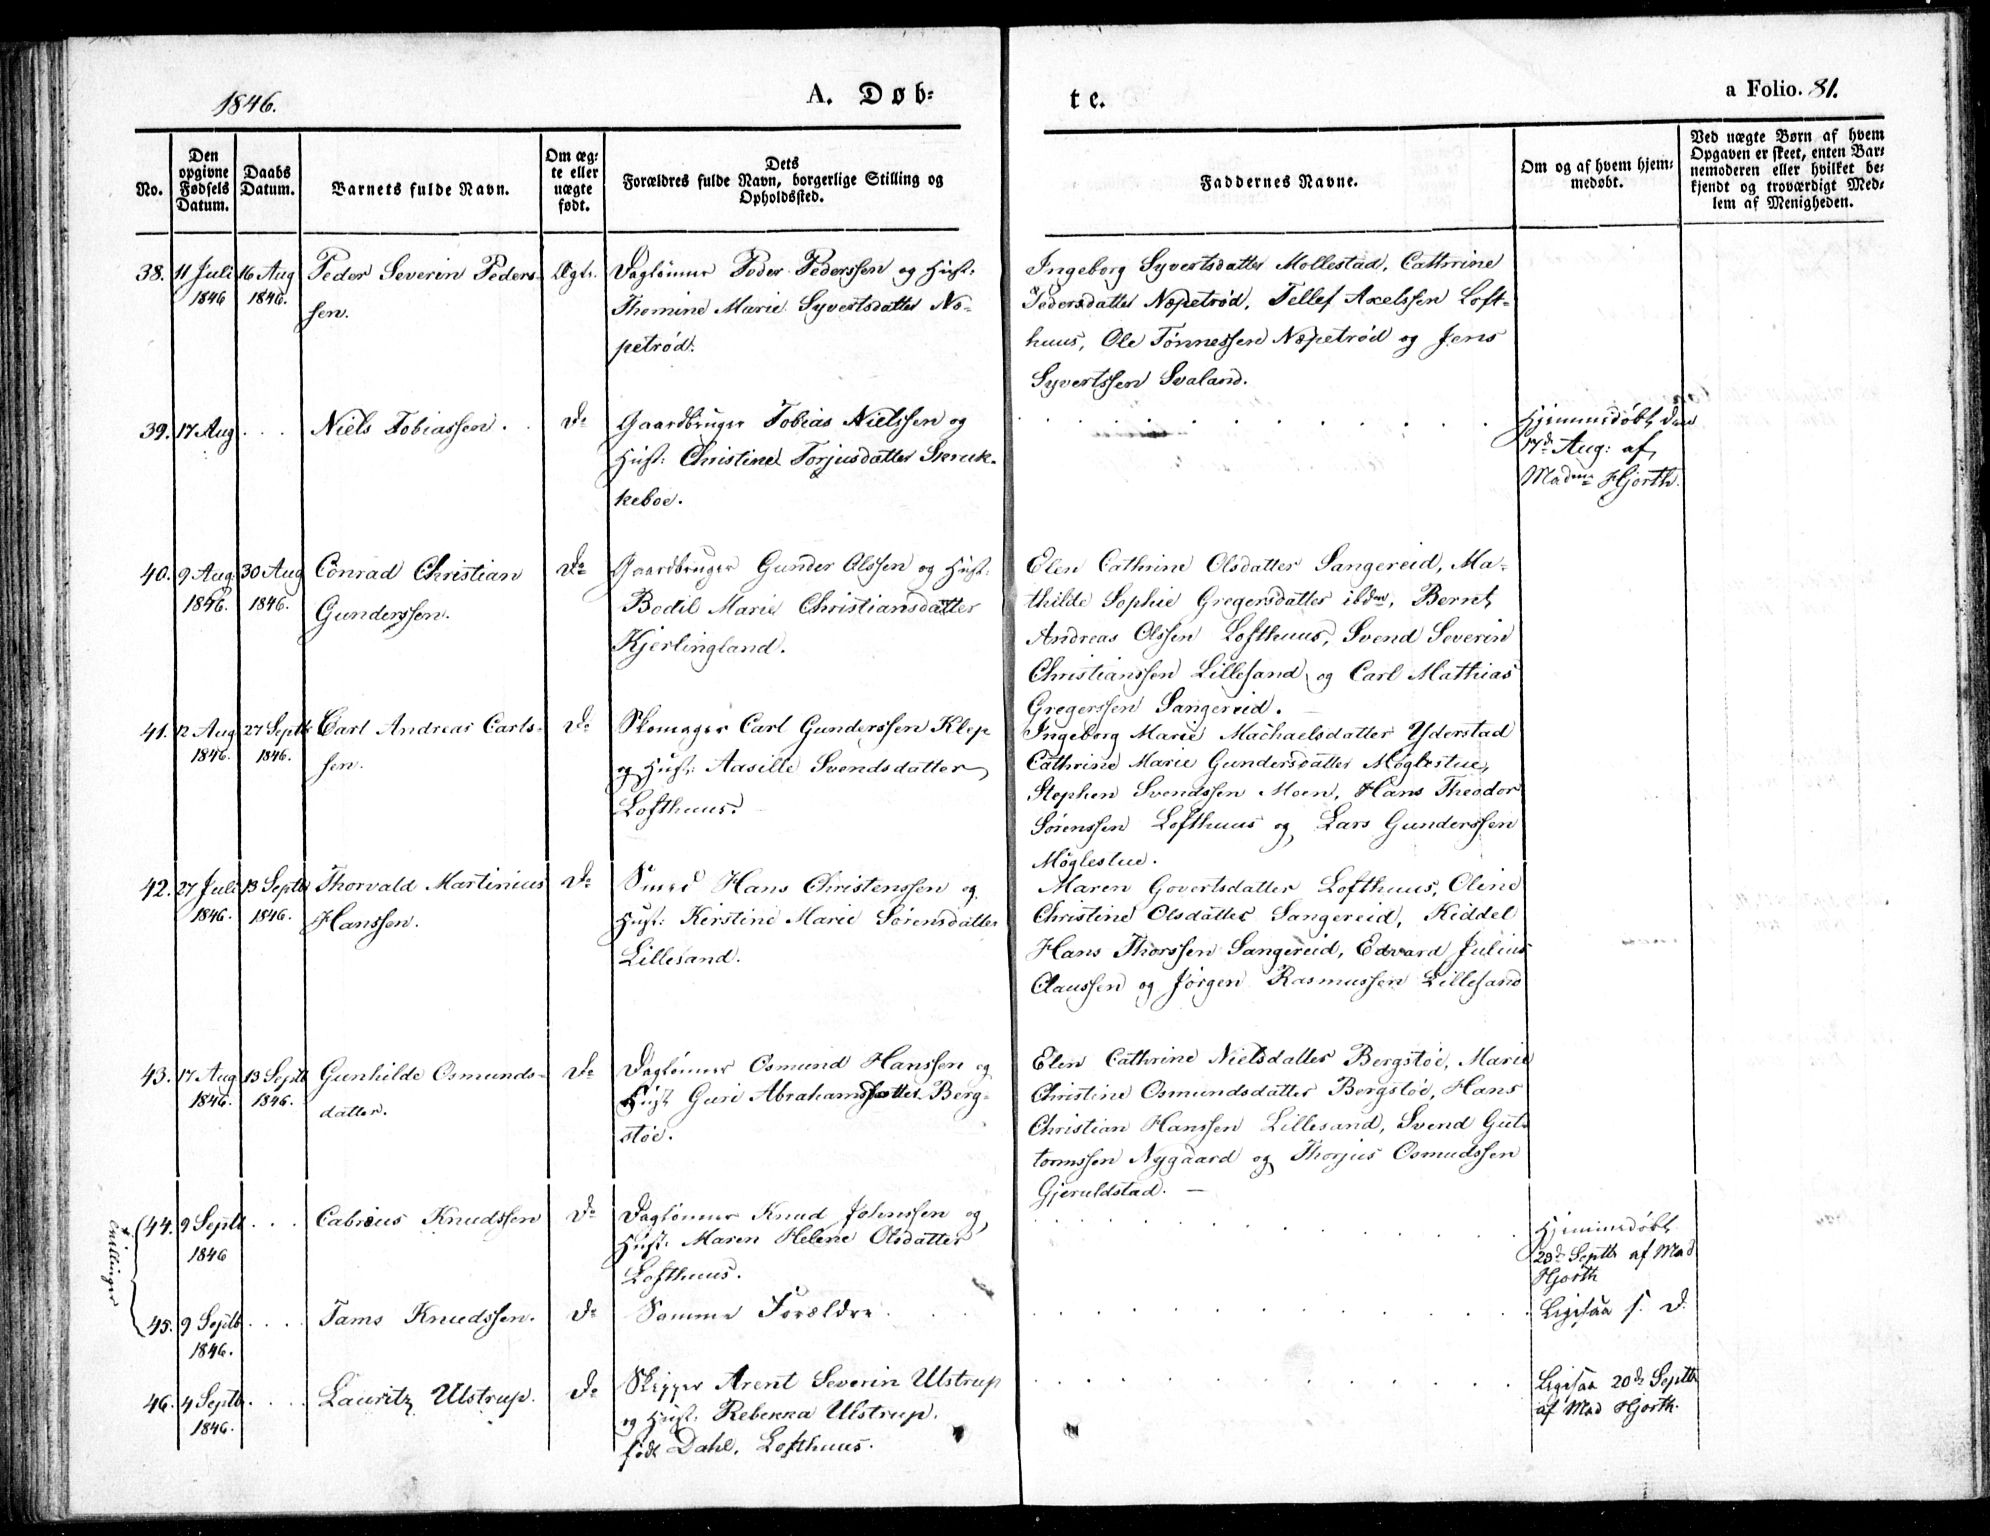 1846.
A. Døb-
te.
a Folio. 81.
No.
Den
opgivne
Fødsels
Datum.
Daabs
Datum.
Barnets fulde Navn.
Om æg-
te eller
uægte
født.
Dets
Forældres fulde Navn, borgerlige Stilling og
Opholdssted.
Faddernes Navne.
Om og af hvem hjem-
medøbt.
Ved uægte Børn af hvem
Opgaven er skeet, enten Bar-
nemoderen eller hvilket be-
kjendt og troværdigt Med-
lem af Menigheden.
38. 11 Juli 16 Aug Peder Severin Peders- Ægte. Daglønner Peder Pederssen og Hust:
1846 1846. sen. Thomine Marie Syvertsdatter Næ-
petrød.
Ingeborg Syvertsdatter Mollestad, Cathrine
Pedersdatter Næpetrød, Tellef Axelssen Loft-
huus, Ole Tønnessen Næpetrød og Jens
Syvertssen Svaland.
39. 17 Aug . . . Niels Tobiassen. Do Gaardbruger Tobias Nielssen og
Hust: Christine Torjusdatter Skruk-
keboe.
Hjemmedøbt den
17de Aug: af
Madme Hjorth.
40. 9 Aug: 30 Aug Conrad Christian Do Gaardbruger Gunder Olssen og Hust:
1846. 1846. Gunderssen. Bodil Marie Christiansdatter
Kjerlingland.
Elen Cathrine Olsdatter Sangereid, Ma-
thilde Sophie Gregersdatter ibdm, Bernt
Andreas Olssen Lofthuus, Svend Severin
Christianssen Lillesand og Carl Mathias
Gregerssen Sangereid.
41. 12 Aug 27 Septb Carl Andreas Carls- Do Skomager Carl Gunderssen Klep
1846. 1846. sen. og Hust: Aasille Svendsdatter
Lofthuus.
Ingeborg Marie Machaelsdatter Yderstad
Cathrine Marie Gundersdatter Møglestue,
Stephen Svendssen Moen, Hans Theodor
Sørenssen Lofthuus og Lars Gunderssen
Møglestue.
42. 27 Juli 13 Septb Thorvald Martinius Do Smed Hans Christenssen og
1846. 1846. Hanssen. Hust: Kirstine Marie Sørensdatter
Lillesand.
Maren Govertsdatter Lofthuus, Oline
Christine Olsdatter Sangereid, Kiddel
Hans Thorssen Sangereid, Edvard Julius
Claussen og Jørgen Rasmussen Lillesand
43. 17 Aug 13 Septb Gunhilde Osmunds- Do Daglønner Osmund Hanssen og
1846. 1846. datter. Hust Guri Abrahamsdatter Berg-
støe.
Elen Cathrine Nielsdatter Bergstøe, Marie
Christine Osmundsdatter Bergstøe, Hans
Christian Hanssen Lillesand, Svend Gut-
tormssen Nygaard og Thorjus Osmudssen
Gjeruldstad.
Tvillinger
44. 9 Septb . . . Cabrius Knudssen Do Daglønner Knud Johnssen og
1846 Hust: Maren Helene Olsdatter
Lofthuus.
Hjemmedøbt
20de Septb af Mad
Hjorth
45. 9 Septb . . . . Tams Knudssen. Do Samme Forældre
1846.
Ligesaa s. D.
46. 4 Septb . . . . Lauritz Ulstrup. Do Skipper Arent Severin Ulstrup
1846. og Hust: Rebekka Ulstrup.
født Dahl, Lofthuus.
Ligesaa 20de Septb
af Mad Hjorth.